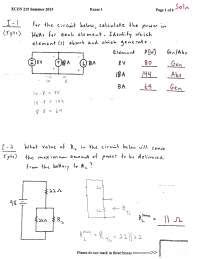 ECEN 215 Summer 2015 Exam 1 Page 1 of 8 Soln
I-1 For the circuit below, calculate the power in
(7pts) Watts for each element. Identify which
element(s) absorb and which generate.
Element P[W] Gen/Abs
8V 80 Gen
18A 144 Abs
8A 64 Gen
8V 18A 8A
8 · 8 = 64
I-2 What value of RL in the circuit below will cause
(7pts) the maximum amount of power to be delivered
from the battery to RL?
22Ω
9V
22Ω RL
11 Ω
Please do not mark in these boxes